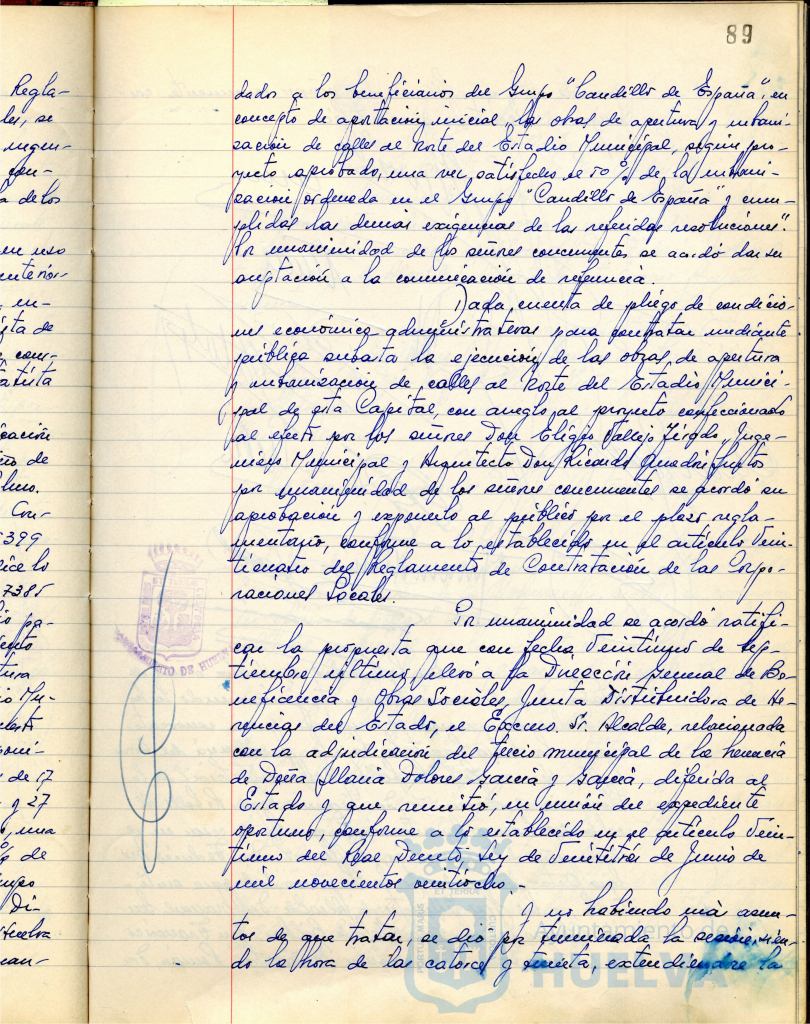 89
Regla-
les, se
a de los
en uso
en-
sta de
com-
cación
Con-
5399
7385
pa-
tura
Mu-
de 17
y 27
, una
% de
Di-
Huelva
dados a los beneficiarios del Grupo "Caudillo de España", en
concepto de aportación inicial, las obras de apertura y urbani-
zación de calles al Norte del Estadio Municipal, según pro-
yecto aprobado, una vez satisfecho el 50 % de la urbani-
zación ordenada en el Grupo "Caudillo de España" y cum-
plidas las demás exigencias de las referidas resoluciones".
Por unanimidad de los señores concurrentes se acordó dar su
aceptación a la comunicación de referencia.
Dada cuenta de pliego de condicio-
nes económico administrativas para contratar mediante
pública subasta la ejecución de las obras de apertura
y urbanización de calles al Norte del Estadio Munici-
pal de esta Capital, con arreglo al proyecto confeccionado
al efecto por los señores Don Eligio Vallejo, Inge-
niero Municipal y Arquitecto Don Ricardo Anadón Frutos
por unanimidad de los señores concurrentes se acordó su
aprobación y exponerlo al público por el plazo regla-
mentario, conforme a lo establecido en el artículo Vein-
ticuatro del Reglamento de Contratación de las Corpo-
raciones Locales.
Por unanimidad se acordó ratifi-
car la propuesta que con fecha Veintiuno de Sep-
tiembre último, elevó a la Dirección General de Be-
neficencia y Obras Sociales, Junta Distribuidora de He-
rencias del Estado, el Excmo. Sr. Alcalde, relacionada
con la adjudicación del tercio municipal de la herencia
de Doña María Dolores García y García, diferida al
Estado y que remitió, en unión del expediente
oportuno, conforme a lo establecido en el artículo Vein-
tiuno del Real Decreto Ley de Veintitrés de Junio de
mil novecientos veintiocho.-
Y no habiendo más asun-
tos de que tratar, se dió por terminada la sesión, sien-
do la hora de las catorce y treinta, extendiéndose la
AYUNTAMIENTO DE HUELVA
Ayuntamiento de
HUELVA